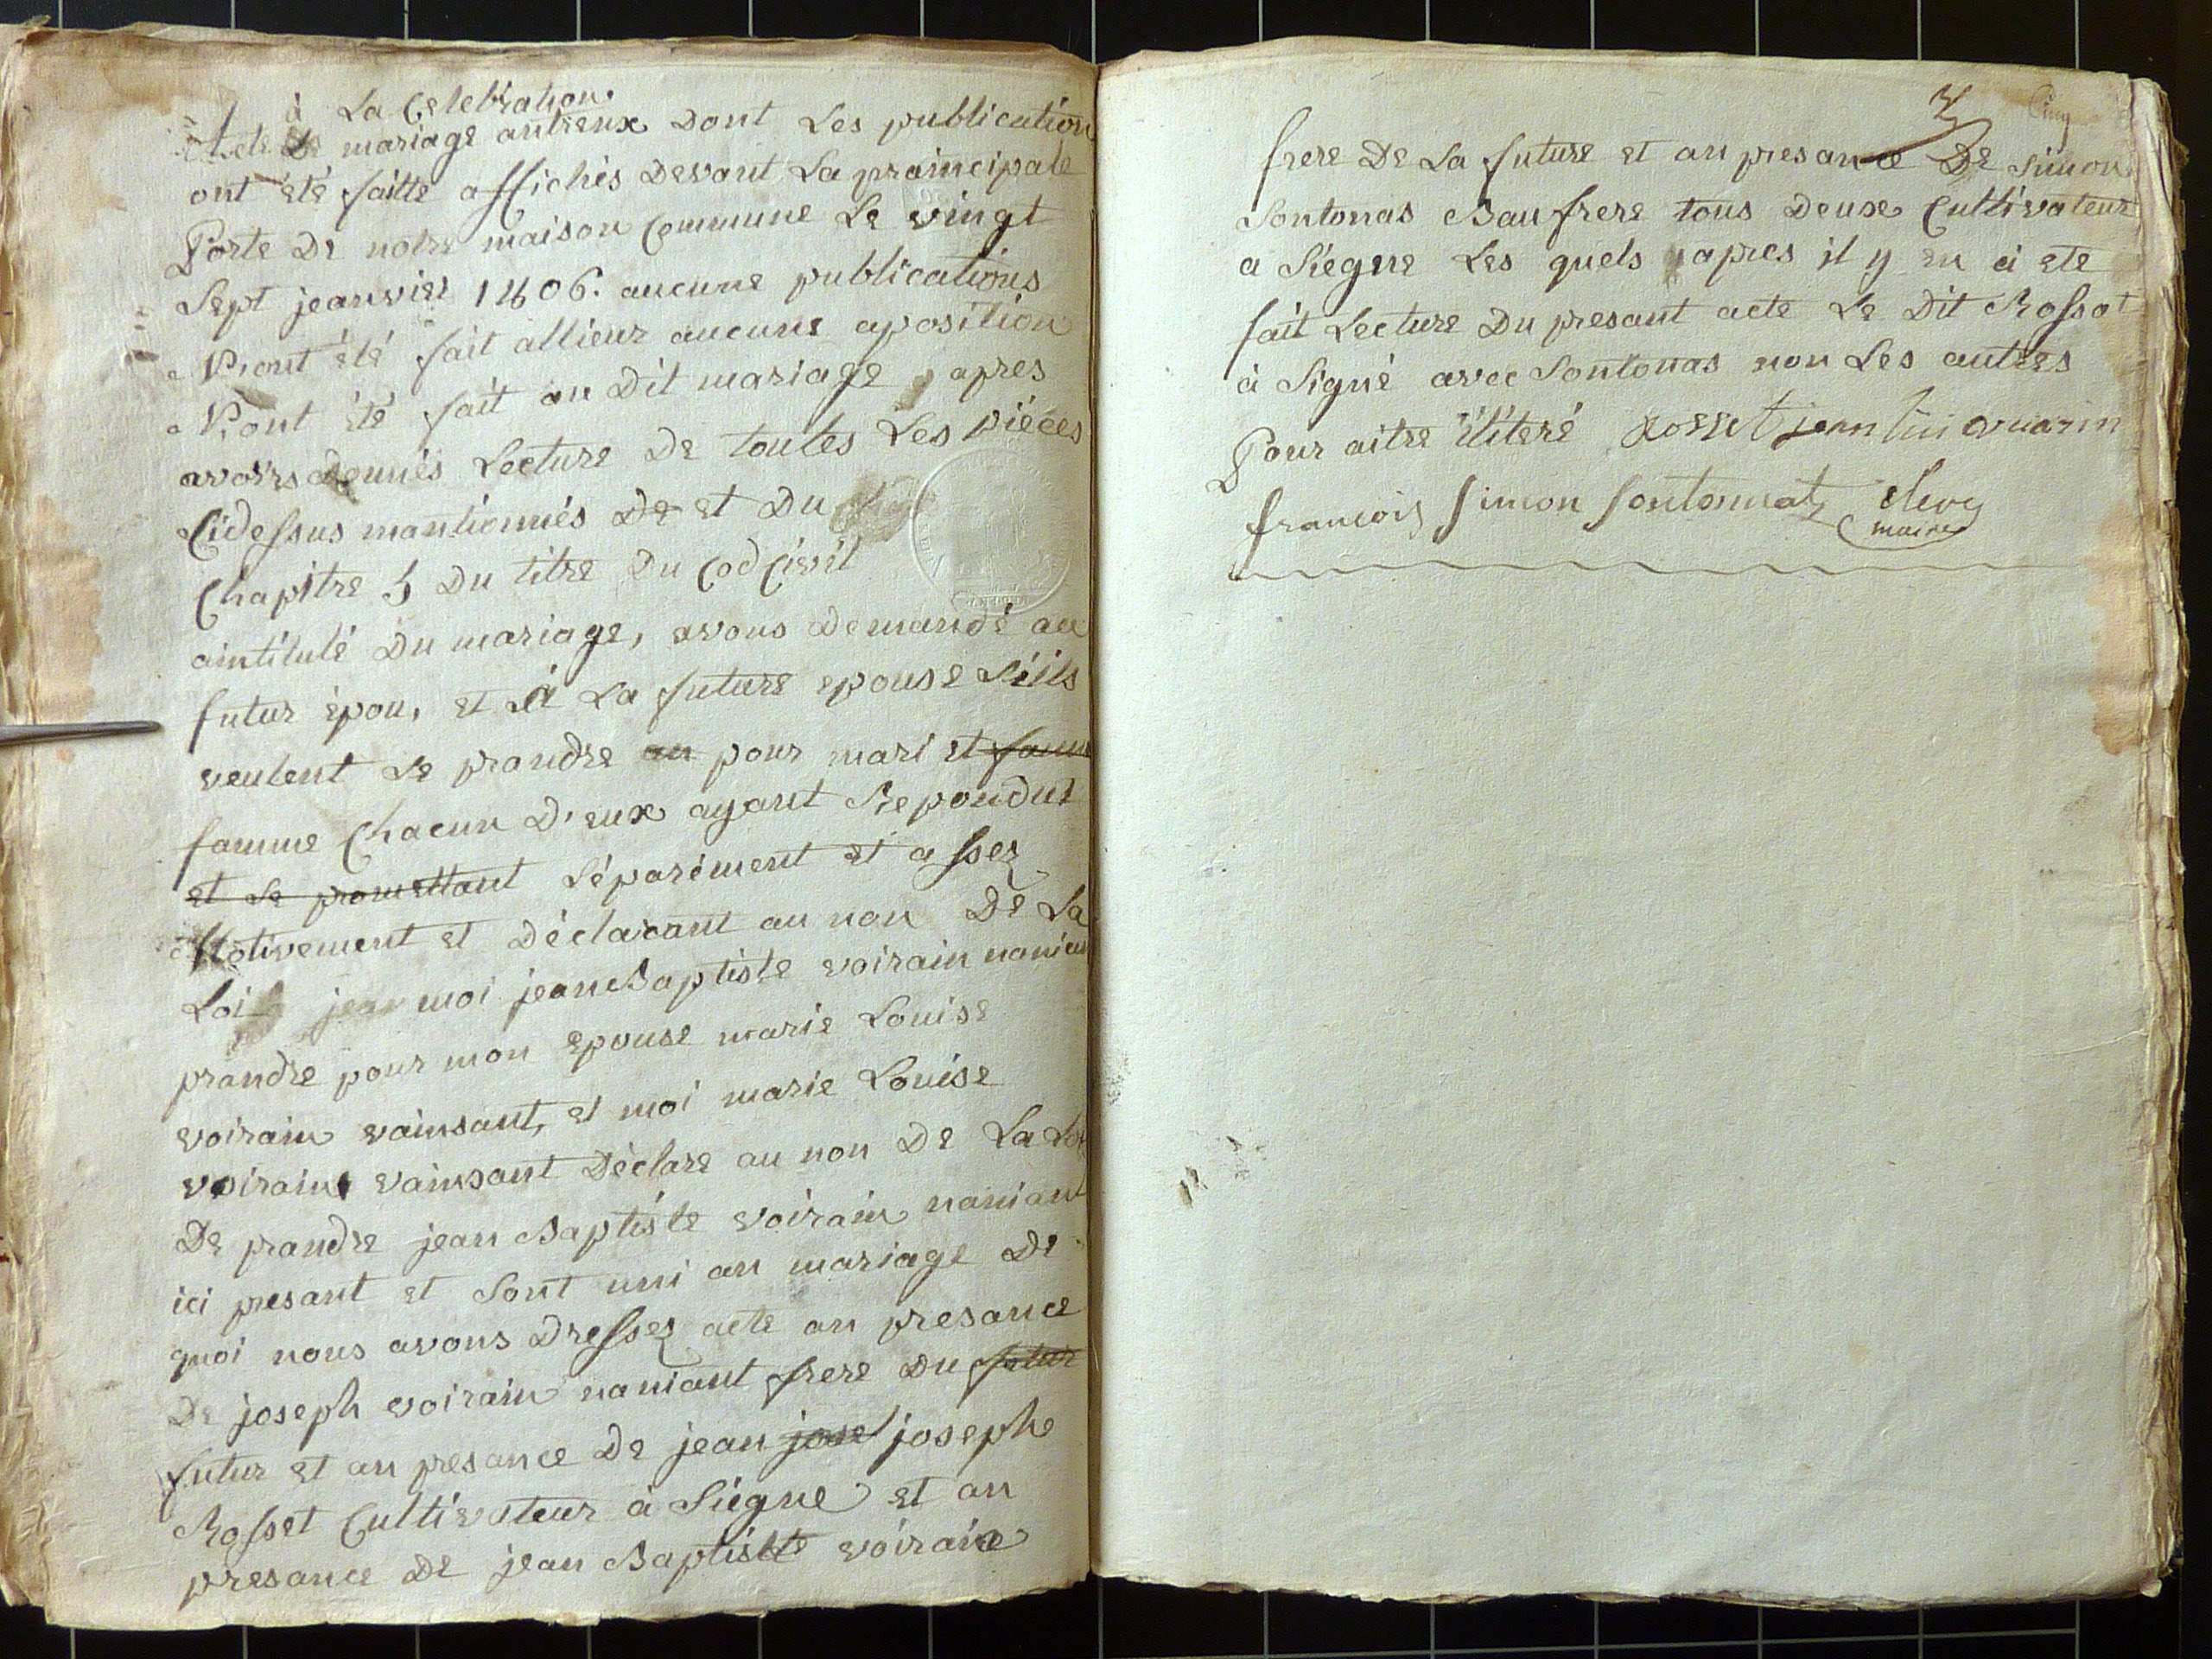 à La Celebration
acte De mariage antreux Dont Les publication
ont été faitte affichés Devant La praincipale
Porte De notre maison Commune Le vingt
Sept jeanvier 1806. aucune publications
N'ont été fait allieur aucune aposition
N'ont été fait au Dit mariage, apres
avoirs donnés Lecture De toutes Les piéces
Cidessus mantionnés De et Du
Chapitre 5 Du titre Du Cod Civil
aintitulé Du mariage, avons Demandé au
futur épou, et À La future epouse S'ils
veulent se prandre an pour mari et famme
famme Chacun D'eux ayant Repondut
et se promettant séparément et assez
ffetivement et Déclarant au non De La
Loi moi jean Baptiste voirain naniant
prandre pour mon epouse marie Louise
voirain vainsant, et moi marie Louise
voirain vainsant Déclare au non De La Loi
De prandre jean Baptiste voirain naniant
ici presant et sont uni an mariage De
quoi nous avons Dressez acte an presance
De joseph voirain naniant frere Du futur
futur et an presance De jean josef josephe
Rosset Cultivateur à Siegne et an
presance De jean Baptiste voirain
Cinq
frere De La future et an presance De simon
Sontonas Baufrere tous Deuxe Cultivateur
a Siegne Les quels apres il y en à ete
fait Lecture Du presant acte Le Dit Rossat
à Signé avec Sontonas non Les autres
Pour aitre iliteré Rosset jean
francois Simon Sontonnat
maire